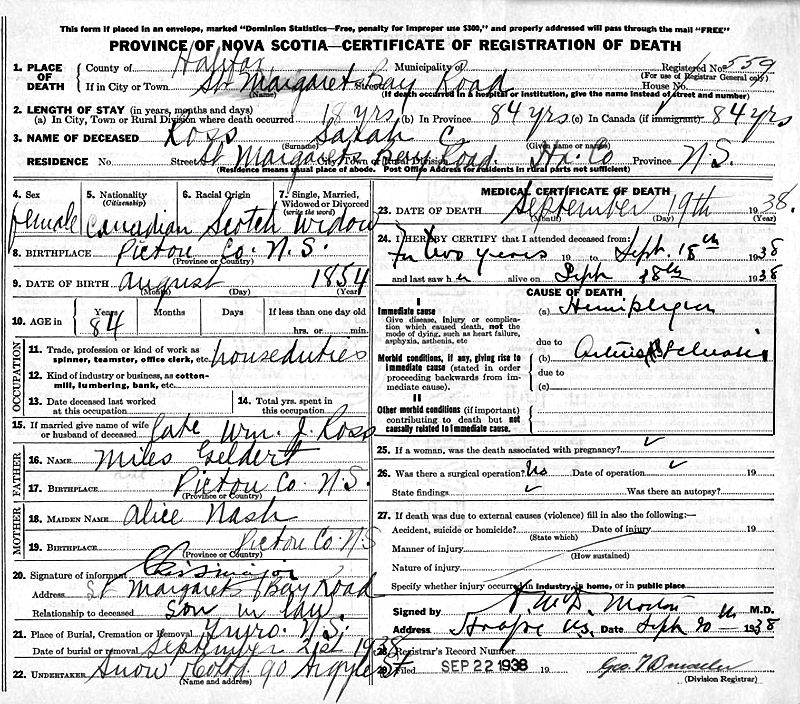 This form if placed in an envelope, marked "Dominion Statistics—Free, penalty for improper use $300," and properly addressed will pass through the mail "FREE"
PROVINCE OF NOVA SCOTIA—CERTIFICATE OF REGISTRATION OF DEATH
1. PLACE OF DEATH
County of Halifax Municipality of Registered No. 559
(For use of Registrar General only)
If in City or Town St Margarets Bay Road Street House No.
(Name) (If death occurred in a hospital or institution, give the name instead of street and number)
2. LENGTH OF STAY (in years, months and days)
(a) In City, Town or Rural Division where death occurred 18 yrs. (b) In Province 84 yrs. (c) In Canada (if immigrant) 84 yrs
3. NAME OF DECEASED Ross Sarah C.
(Surname) (Given name or names)
RESIDENCE No. Street St Margarets Bay Road. City, Town or Rural Division Hx. Co Province N.S.
(Residence means usual place of abode. Post Office Address for residents in rural parts not sufficient)
4. Sex female
5. Nationality (Citizenship) Canadian
6. Racial Origin Scotch
7. Single, Married, Widowed or Divorced (write the word) Widow
8. BIRTHPLACE Pictou Co. N.S.
(Province or Country)
9. DATE OF BIRTH August 1854
(Month) (Day) (Year)
10. AGE in Years 84 Months Days If less than one day old
hrs. or min.
OCCUPATION
11. Trade, profession or kind of work as spinner, teamster, office clerk, etc. houseduties
12. Kind of industry or business, as cotton-mill, lumbering, bank, etc.
13. Date deceased last worked at this occupation
14. Total yrs. spent in this occupation
15. If married give name of wife or husband of deceased Late Wm. J. Ross
FATHER
16. NAME Miles Geldert
17. BIRTHPLACE Pictou Co. N.S.
(Province or Country)
MOTHER
18. MAIDEN NAME Alice Nash
19. BIRTHPLACE Pictou Co. N.S
(Province or Country)
20. Signature of informant
Address St Margarets Bay Road
Relationship to deceased son in law
21. Place of Burial, Cremation or Removal Truro. N.S.
Date of burial or removal September 21st 1938
22. UNDERTAKER Snow & Co Ltd 90 Argyle St
(Name and address)
MEDICAL CERTIFICATE OF DEATH
23. DATE OF DEATH September 19th 1938.
(Month) (Day)
24. I HEREBY CERTIFY that I attended deceased from:
For two years 19 to Sept. 18th 1938
and last saw her alive on Sept 18th 1938
CAUSE OF DEATH
I
Immediate cause
Give disease, injury or complication which caused death, not the mode of dying, such as heart failure, asphyxia, asthenia, etc
(a) Hemiplegia
due to
Morbid conditions, if any, giving rise to immediate cause (stated in order proceeding backwards from immediate cause).
(b)
due to
(c)
II
Other morbid conditions (if important) contributing to death but not causally related to immediate cause.
25. If a woman, was the death associated with pregnancy?
26. Was there a surgical operation? No Date of operation 19
State findings Was there an autopsy?
27. If death was due to external causes (violence) fill in also the following:—
Accident, suicide or homicide? Date of injury 19
(State which)
Manner of injury
(How sustained)
Nature of injury
Specify whether injury occurred in industry, in home, or in public place
Signed by M.D.
Address Date Sept 20th 1938
28. Registrar's Record Number
29. Filed SEP 22 1938
(Division Registrar)